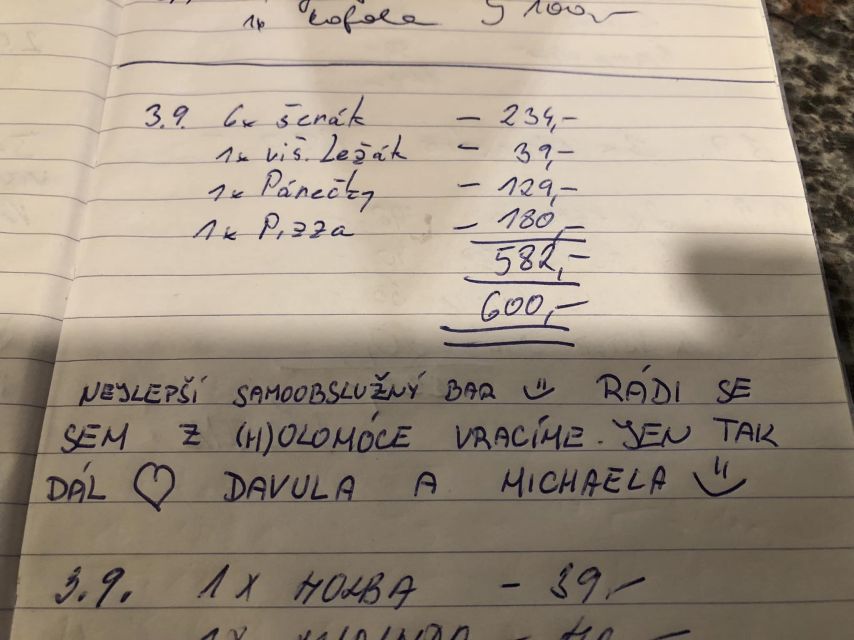 1x kofola 100,-
3.9. 6x šerák - 234,-
1x viš. Ležák - 39,-
1x Párečky - 129,-
1x Pizza - 180,-
582,-
600,-
NEJLEPŠÍ SAMOOBSLUŽNÝ BAR RÁDI SE
SEM Z (H)OLOMÓCE VRACÍME. JEN TAK
DÁL ♡ DAVULA A MICHAELA
3.9. 1X HOLBA - 39,-
1X